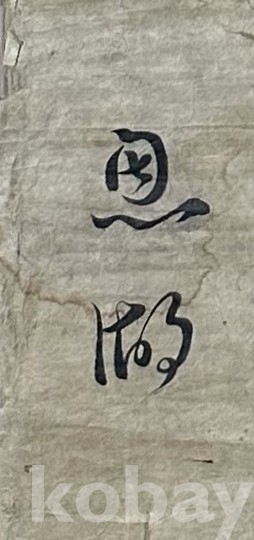 恩
湖
kobay